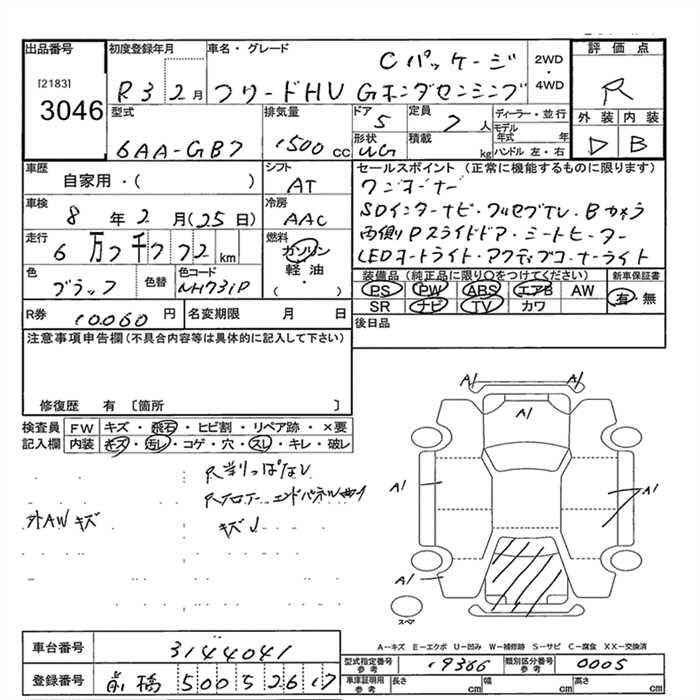 出品番号
[2183]
3046
初度登録年月
R3 2月
車名・グレード
Cパッケージ
フリードHV Gホンダセンシング
2WD
・
4WD
評価点
R
外装 内装
D B
型式
6AA-GB7
排気量
1500 cc
ドア
5
定員
7 人
形状
積載
kg
ディーラー・並行
モデル年式 年
ハンドル 左・右
車歴
自家用・( )
シフト
AT
車検
8年2月(25日)
冷房
AAC
走行
6万7千772km
燃料
ガソリン
軽油
・
( )
色
ブラック
色替
色コード
NH731P
セールスポイント (正常に機能するものに限ります)
ワンオーナー
SDインターナビ・フルセグTV・Bカメラ
両側Pスライドドア・シートヒーター
LEDオートライト・アクティブコーナーライト
装備品 (純正品に限り○をつけてください)
PS PW ABS エアB AW
SR ナビ TV カワ
新車保証書
有・無
R券 10060円
名変期限 月 日
後日品
注意事項申告欄(不具合内容等は具体的に記入して下さい)
修復歴 有 〔箇所 〕
検査員記入欄
FW キズ・飛石・ヒビ割・リペア跡・×要
内装 キズ・汚レ・コゲ・穴・スレ・キレ・破レ
外AWキズ
キズ
A1
A1
A1
A1
A1
A1
スペア
A-キズ E-エクボ U-凹み W-補修跡 S-サビ C-腐食 XX-交換済
車台番号 3144041
登録番号 前橋 500 5 2617
型式指定番号 参考 19366
類別区分番号 参考 0005
車庫証明用 参考 長さ cm 幅 cm 高さ cm